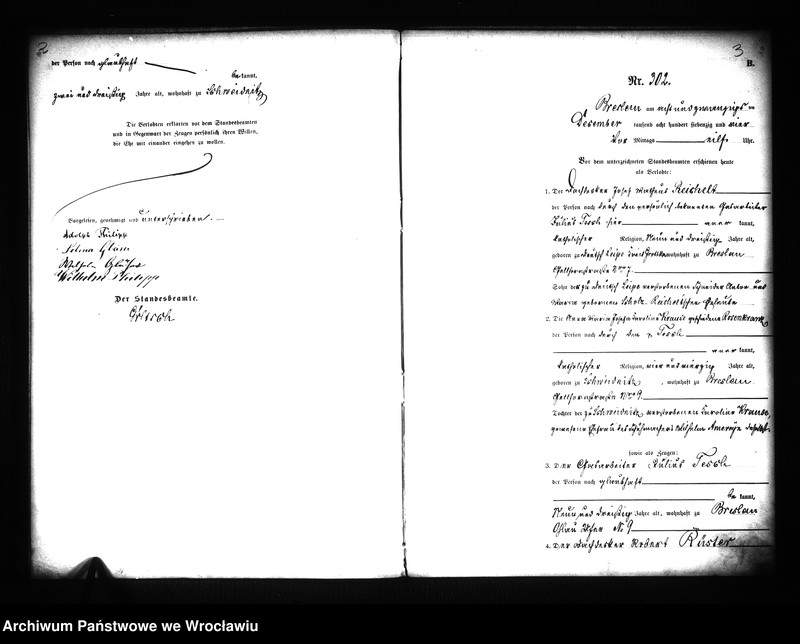 2
der Person nach glaubhaft
be kannt,
zwei und dreißig Jahre alt, wohnhaft zu Schweidnitz
Die Verlobten erklärten vor dem Standesbeamten
und in Gegenwart der Zeugen persönlich ihren Willen,
die Ehe mit einander eingehen zu wollen.
Vorgelesen, genehmigt und unterschrieben.
Adolph Philipp
Wilhelm
Wilhelm Philipp
Der Standesbeamte.
3
B.
Nr. 302.
Breslau am acht und zwanzigsten
Dezember tausend acht hundert siebenzig und vier
Vor Mittags eilf Uhr.
Vor dem unterzeichneten Standesbeamten erschienen heute
als Verlobte:
1. Der Dachdecker Josef Reichelt
der Person nach durch den persönlich bekannten Gasarbeiter
Julius Tesch hier aner kannt,
katholischer Religion, Neun und dreißig Jahre alt,
geboren zu Deutsch Leipe wohnhaft zu Breslau
No 7.
Sohn der zu Deutsch Leipe verstorbenen Schneider und
geborenen Scholz Reichelt'schen Eheleute
2. Die Anna Maria Josefa Karoline Krause geschiedene Rosenkranz
der Person nach durch den p. Tesch
aner kannt,
katholischer Religion, vier und vierzig Jahre alt,
geboren zu Schweidnitz, wohnhaft zu Breslau
No 9.
Tochter der zu Schweidnitz verstorbenen Karoline Krause,
Ehefrau des Schuhmachers Wilhelm
sowie als Zeugen:
3. Der Gasarbeiter Julius Tesch
der Person nach glaubhaft
be kannt,
Neun und dreißig Jahre alt, wohnhaft zu Breslau
Ohlau Ufer No 9
4. Der Dachdecker Robert Rüster
Archiwum Państwowe we Wrocławiu